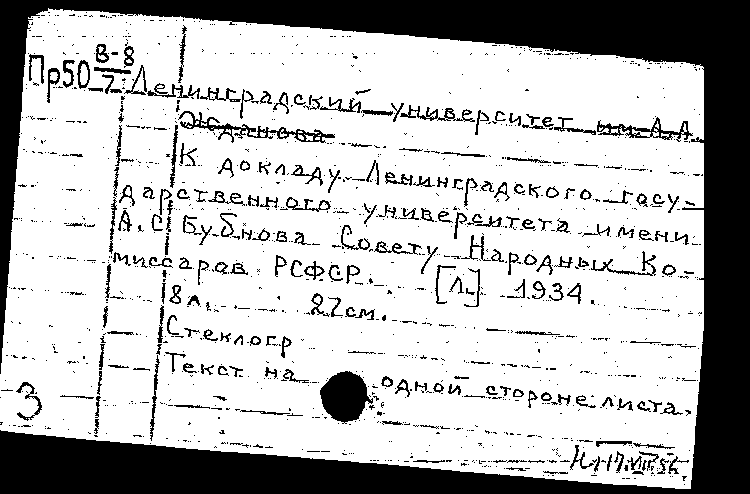 Пр50 В-8/7 Ленинградский университет им. А.А.
Жданова
К докладу Ленинградского госу-
дарственного университета имени
А.С. Бубнова Совету Народных Ко-
миссаров РСФСР. [Л.] 1934.
8 л. 27 см.
Стеклогр
Текст на одной стороне листа.
3